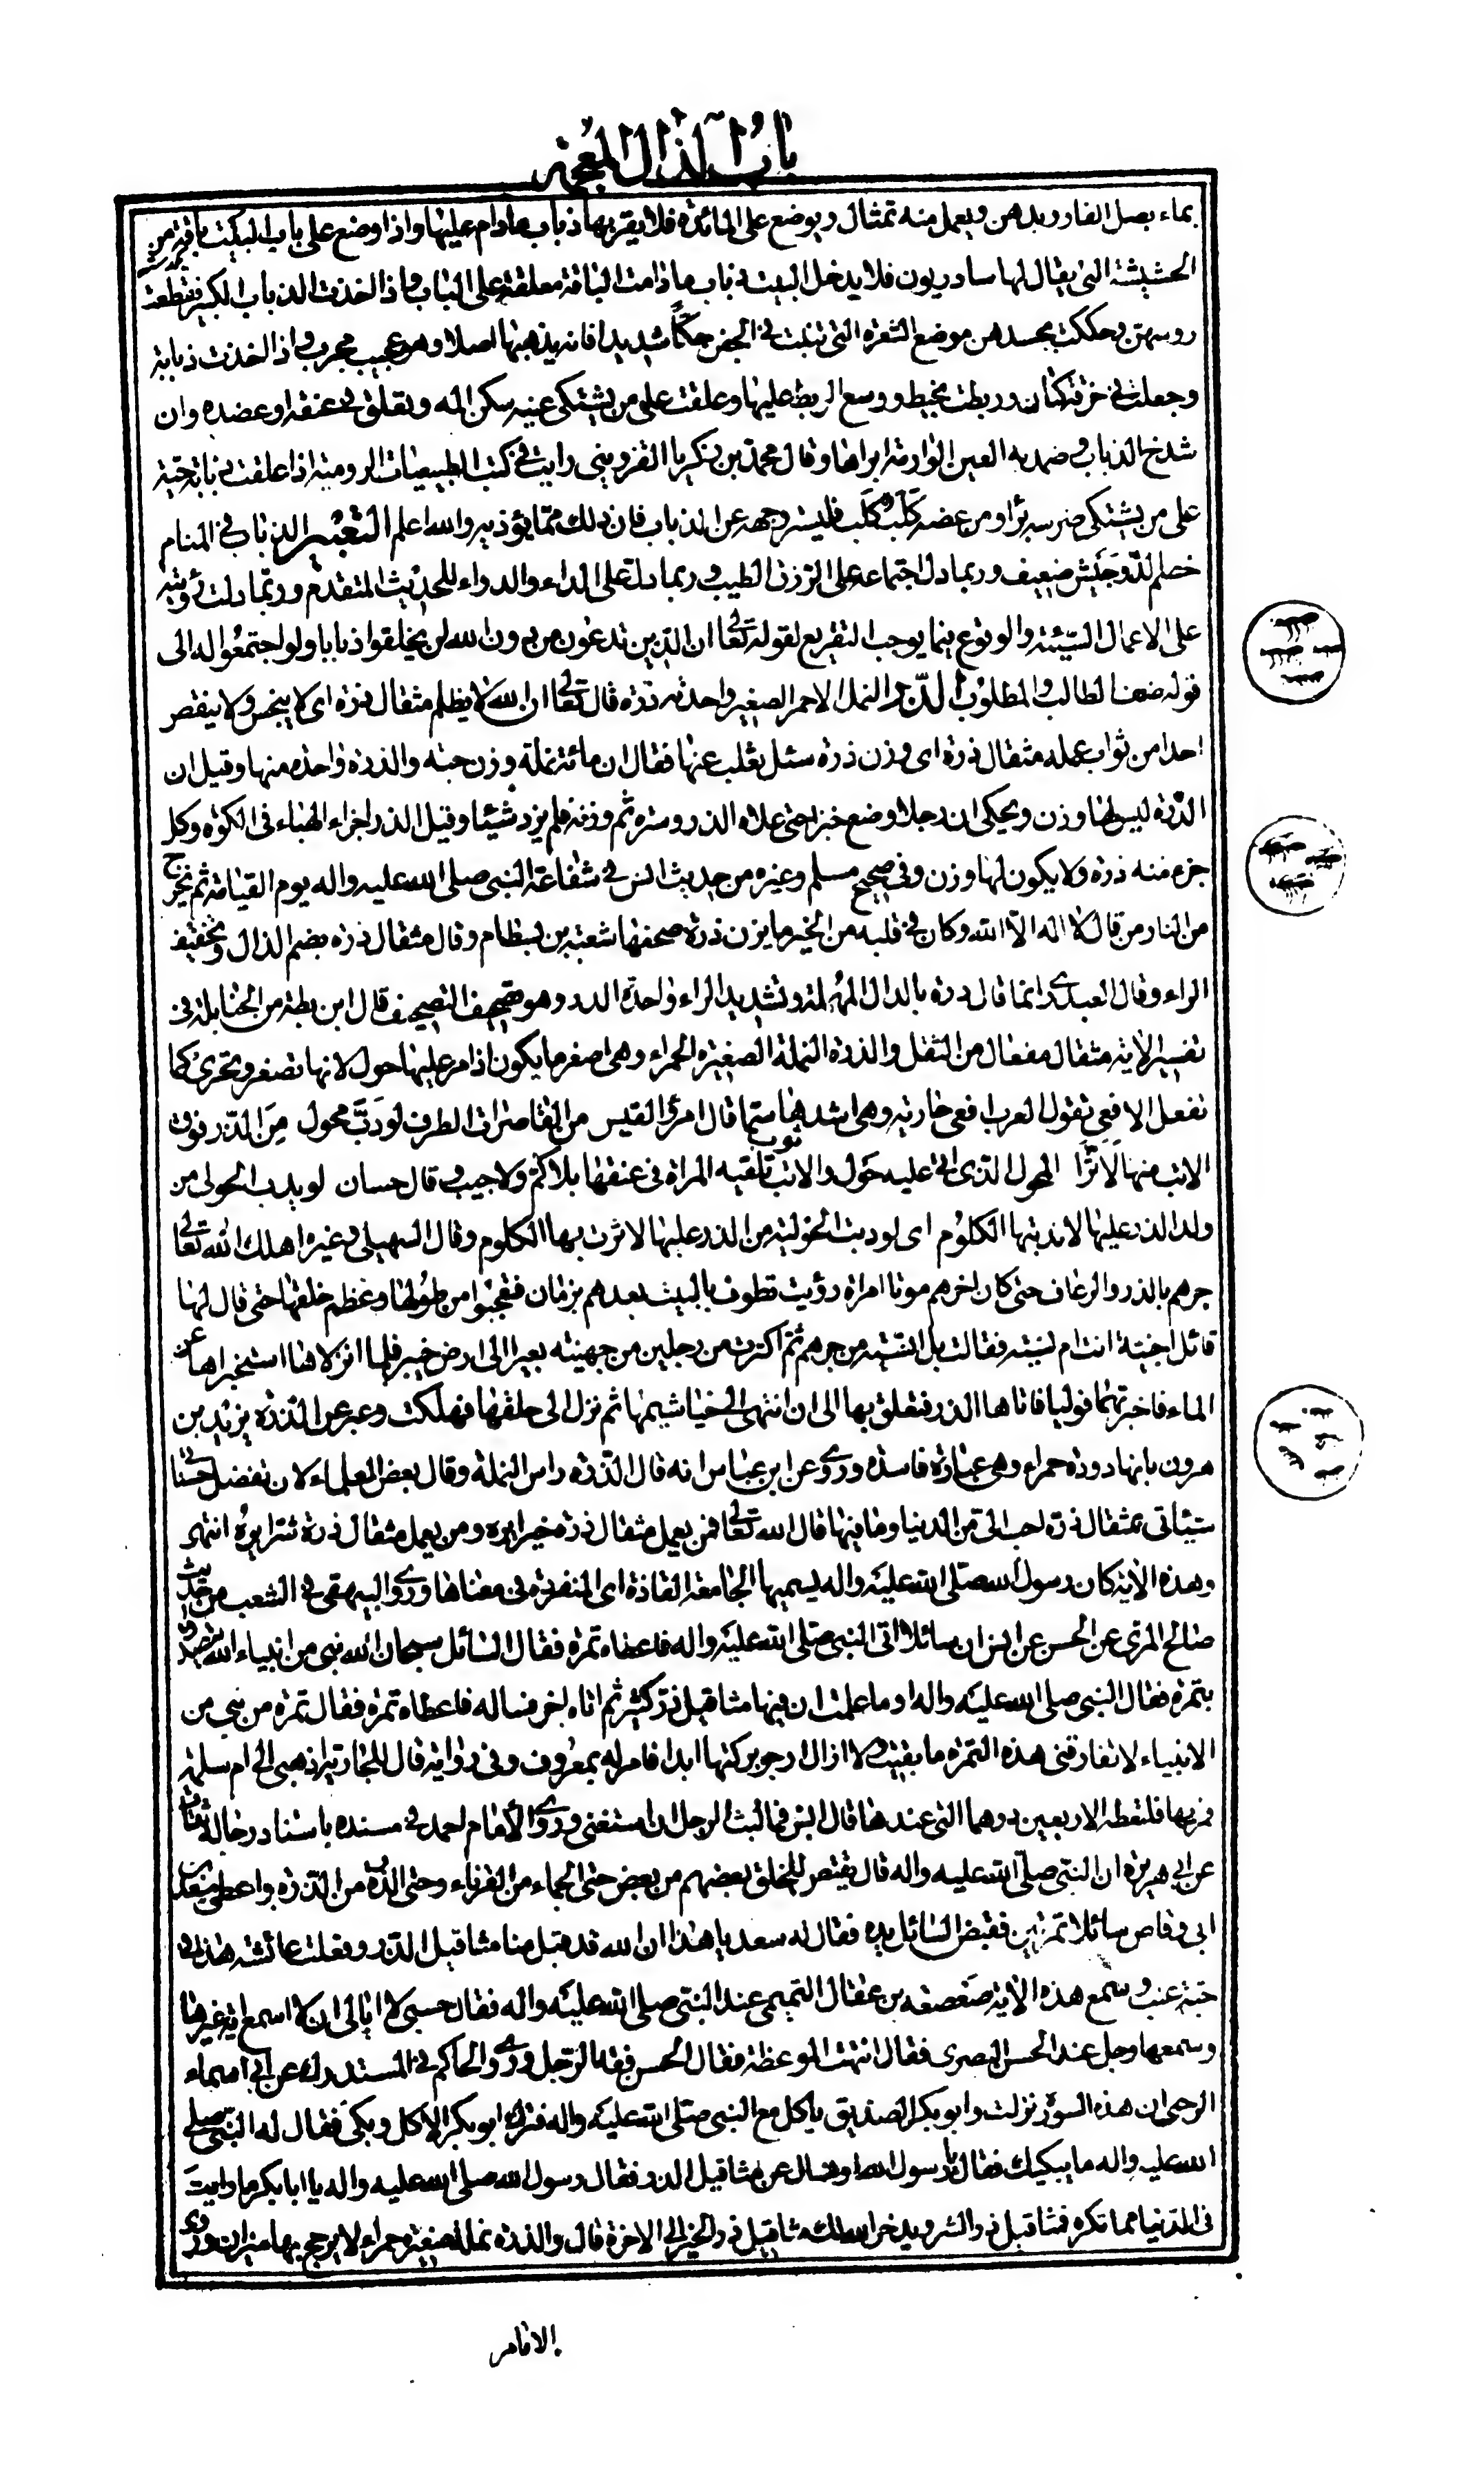 باب الذال المعجمة
بماء بصل الفار ويدهن ويعمل منه تمثال ويوضع على المائدة فلا يقربها ذباب مادام عليها واذا وضع على باب البيت باقة من
الحشيشة التى يقال لها سادريون فلا يدخل البيت ذباب مادامت الباقة معلقة على الباب واذا اخذت الذباب الكبير فقطعت
روسهن وحككت بجسدهن موضع الشعرة التى تنبت فى الجفن حكا شديدا فانه يذهبها اصلا وهو عجيب مجرب واذا اخذت ذبابة
وجعلت فى خرقة كتان وربطت بخيط ووسع الربط عليها وعلقت على من يشتكى عينيه سكن المه وتعلق فى عنقه او عضده وان
شدخ الذباب وضمد به العين الوارمة ابراها وقال محمد بن زكريا القزوينى رايت فى كتب الطبيعيات الرومية اذا علقت ذبابة حية
على من يشتكى ضرسه برا ومن عضه كَلْب كَلِب فليستر وجهه عن الذباب فان ذلك مما يؤذيه والله اعلم التعبير الذباب فى المنام
خصم الدّ وجَيش ضعيف وربما دل اجتماعه على الرزق الطيب وربما دلت على الداء والدواء للحديث المتقدم وربما دلت رؤيته
على الاعمال السيئة والوقوع فيما يوجب التقريع لقوله تعالى ان الذين تدعون من دون الله لن يخلقوا ذبابا ولو اجتمعوا له الى
قوله ضعف الطالب والمطلوب الذر النمل الاحمر الصغير واحدته ذرة قال تعالى ان الله لا يظلم مثقال ذرة اى لا يبخس ولا ينقص
احدا من ثواب عمله مثقال ذرة اى وزن ذرة سئل ثعلب عنها فقال ان مائة نملة وزن حبة والذرة واحدة منها وقيل ان
الذرة ليس لها وزن ويحكى ان رجلا وضع خبزا حتى علاه الذر وستره ثم وزنه فلم يزد شيئا وقيل الذر اجزاء الهباء فى الكوة وكل
جزء منه ذرة ولا يكون لها وزن وفى صحيح مسلم وغيره من حديث انس فى شفاعة النبى صلى الله عليه واله يوم القيامة ثم يخرج
من النار من قال لا اله الا الله وكان فى قلبه من الخير ما يزن ذرة صحفها شعبة بن بسطام وقال مثقال ذرة بضم الذال وتخفيف
الراء وقال العبدى انما قال درة بالدال المهملة وتشديد الراء واحدة الدر وهو تصحيف التصحيف قال ابن بطة من الحنابلة فى
تفسير الاية مثقال مفعال من الثقل والذرة النملة الصغيرة الحمراء وهى اصغر ما يكون اذا مر عليها حول لانها تصغر وتحرى كما
تفعل الافعى تقول العرب افعى حارية وهى اشدها سما قال امرئ القيس من القاصرات الطرف لو دَبَّ محول مِنَ الذّر فوق
الاتب منها لاثّرا المحول الذى اتى عليه حَول والاتب ثوب تلقيه المراة فى عنقها بلا كمّ ولا جيب وقال حسان لو يدب الحولى من
ولد الذر عليها لاندبتها الكلوم اى لو دبت الحولية من الذر عليها لاثرت بها الكلوم وقال السهيلى وغيره اهلك الله تعالى
جرهم بالذر والرعاف حتى كان اخرهم موتا امراة رؤيت تطوف بالبيت بعدهم بزمان فتعجبوا من طولها وعظم خلقها حتى قال لها
قائل اجنية انت ام انسية فقالت بل انسية من جرهم ثم اكترت من رجلين من جهينة بعيرا الى ارض خيبر فلما انزلاها استخبراها عن
الماء فاخبرتهما فوليا فاتاها الذر فتعلق بها الى ان انتهى الى خياشيمها ثم نزل الى حلقها فهلكت وعبر عن الذرة يزيد بن
هرون بانها دودة حمراء وهى عبارة فاسدة وروى عن ابن عباس انه قال الذرة راس النملة وقال بعض العلماء لان تفضل حسناتى
سيئاتى بمثقال ذرة احب الى من الدنيا وما فيها قال الله تعالى فمن يعمل مثقال ذرة خيرا يره ومن يعمل مثقال ذرة شرا يره انتهى
وهذه الاية كان رسول الله صلى الله عليه واله يسميها الجامعة الفاذة اى المنفردة فى معناها وروى البيهقى فى الشعب من حديث
صالح المرى عن الحسن عن انس ان سائلا اتى النبى صلى الله عليه واله فاعطاه تمرة فقال السائل سبحان الله نبى من انبياء الله يتصدق
بتمرة فقال النبى صلى الله عليه واله اوما علمت ان فيها مثاقيل ذر كثير ثم اتاه اخر فساله فاعطاه تمرة فقال تمرة من نبى من
الانبياء لا تفارقنى هذه التمرة ما بقيت ولا ازال ارجو بركتها ابدا فامر له بمعروف وفى رواية قال للجارية اذهبى الى ام سلمة
فمريها فلتعطه الاربعين درهما التى عندها قال انس فما لبث الرجل ان استغنى وروى الامام احمد فى مسنده باسناد رجاله ثقات
عن ابى هريرة ان النبى صلى الله عليه واله قال يقتص للخلق بعضهم من بعض حتى الجماء من القرناء وحتى الذرة من الذرة واعطى سعد بن
ابى وقاص سائلا تمرتين فقبض السائل يده فقال له سعد يا هذا ان الله قد قبل منا مثاقيل الذر وفعلت عائشة هذا فى
حبة عنب وسمع هذه الاية صعصعة بن عقال التميمى عند النبى صلى الله عليه واله فقال حسبى لا ابالى ان لا اسمع اية غيرها
وسمعها رجل عند الحسن البصرى فقال انتهت الموعظة فقال الحسن فقه الرجل وروى الحاكم فى المستدرك عن ابى اسماء
الرحبى ان هذه السورة نزلت وابو بكر الصديق ياكل مع النبى صلى الله عليه واله فترك ابو بكر الاكل وبكى فقال له النبى صلى
الله عليه واله ما يبكيك فقال يا رسول الله او نسال عن مثاقيل الذر فقال رسول الله صلى الله عليه واله يا ابا بكر ما رايت
فى الدنيا مما تكره فمثاقيل ذر الشر ويدخر الله لك مثاقيل ذر الخير الى الاخرة قال والذرة نملة صغيرة حمراء لا يرجح بها ميزان وروى
الامام